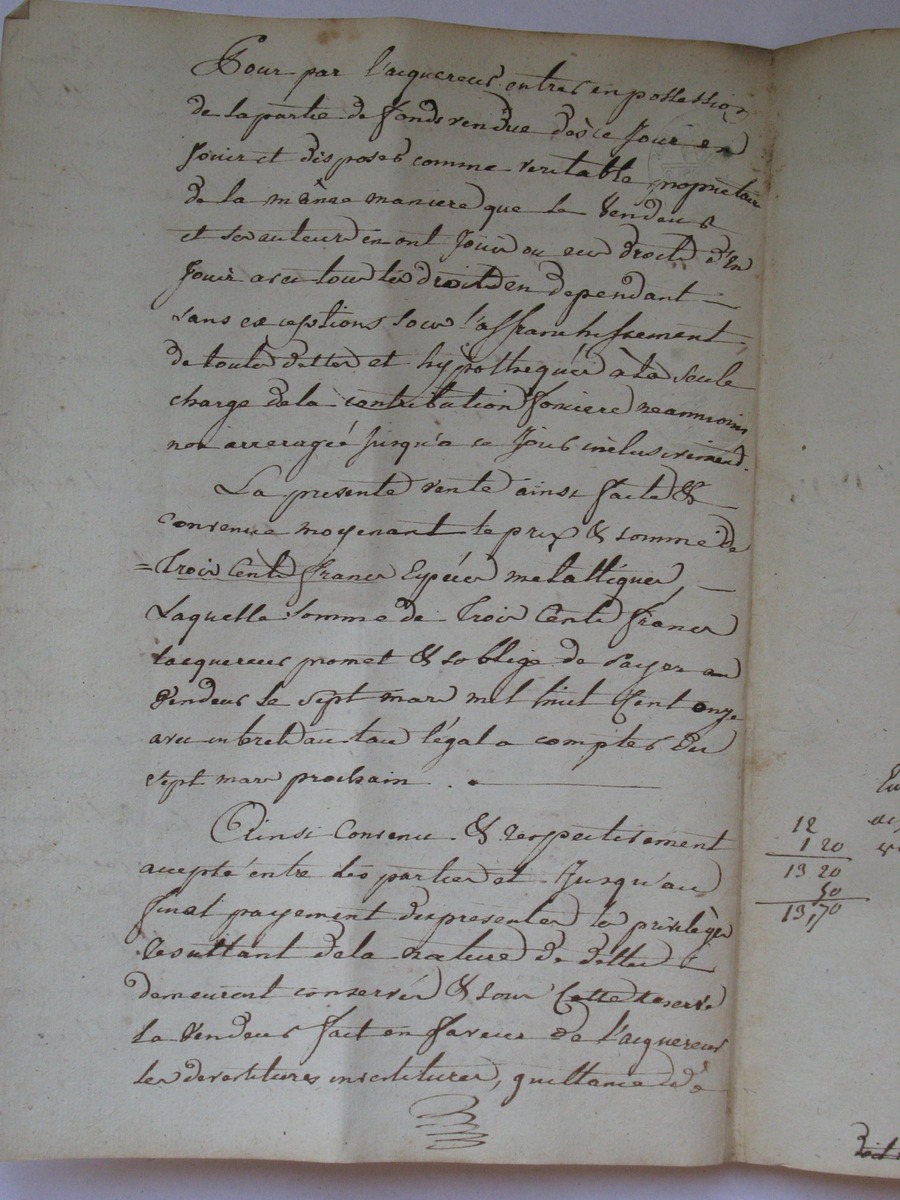 Pour par l'acquereur entrer en possession
de la partie de fonds vendue dès ce Jour en
Jouir et disposer comme veritable propriétaire
de la même maniere que le Vendeur
et ses auteurs en ont Joui ou eu droit d'en
Jouir avec tous les droits en dependant
sans exceptions sous l'affranchissement
de toutes dettes et hypotheques à la seule
charge de la contribution fonciere neanmoins
non arreragée Jusqu'a ce Jour inclusivement.
La presente vente ainsi faite &
convenue moyenant le prix & somme de
= Trois Cents francs Espéces metalliques
Laquelle Somme de Trois Cents francs
lacquereur promet & soblige de payer au
Vendeur le sept mars mil huit Cent onze
avec intrets au taux légal a compter du
sept mars prochain .
Ainsi Convenu & respectivement
accepté entre les parties et Jusqu'au
final payement des presentes les privilèges
resultant de la nature de dettes
demeurent conservés & sous Cette reserve
le Vendeur fait en faveur de l'acquereur
les devestitures investitures, quittance de
12
1 20
13 20
50
13,70